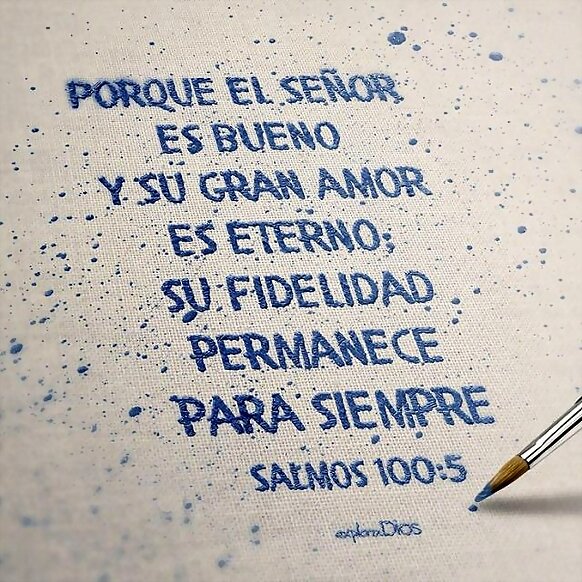 PORQUE EL SEÑOR
ES BUENO
Y SU GRAN AMOR
ES ETERNO;
SU FIDELIDAD
PERMANECE
PARA SIEMPRE
SALMOS 100:5
exploraDios